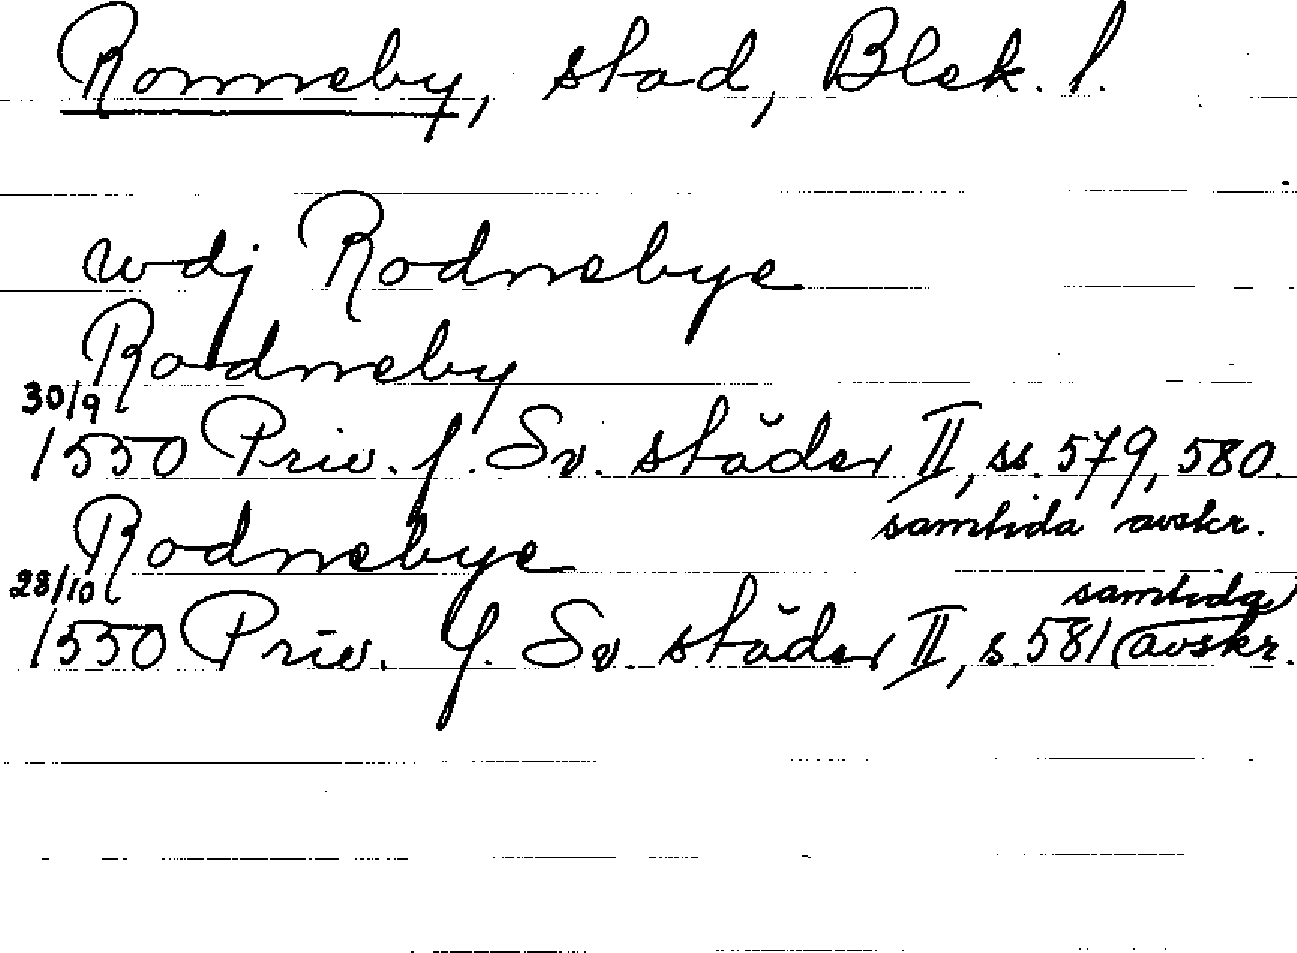 Ronneby, stad, Blek. l.
wdj Rodnebye
Rodneby
30/9
1550 Priv. f. Sv. städer II, ss. 579, 580.
samtida avskr.
Rodnebye
28/10
samtida
1550 Priv. f. Sv. städer II, s. 581 (avskr.